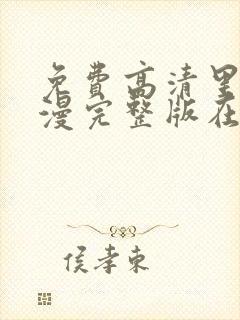 免费高清里
漫完整版在
侯孝東